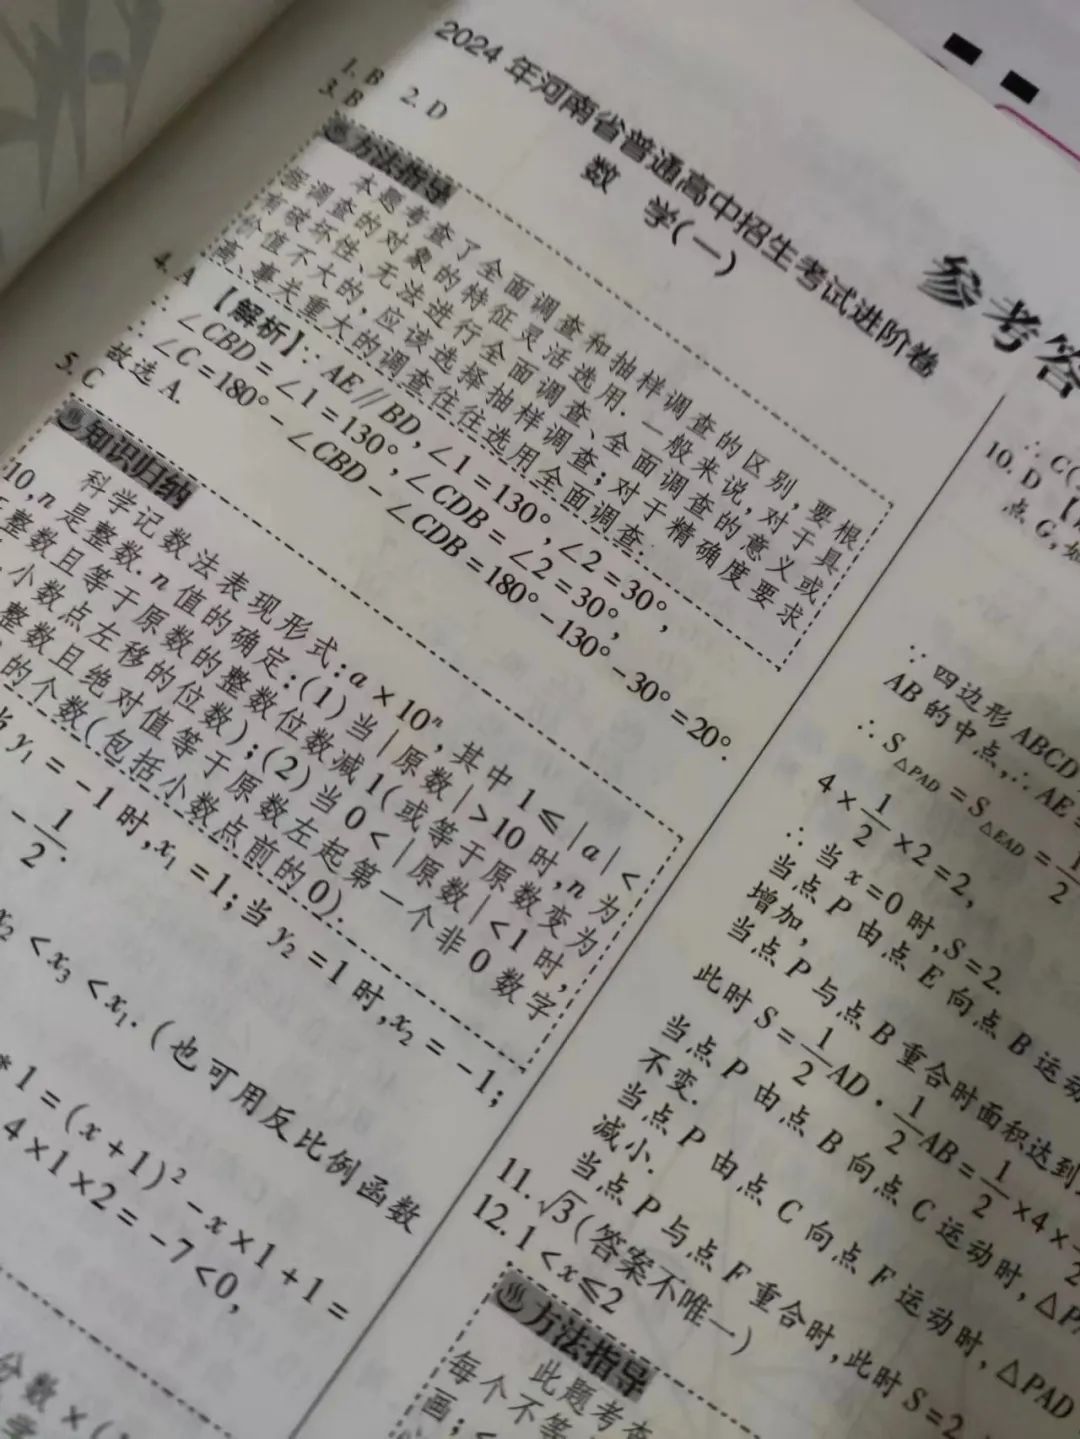 参考答
2024年河南省普通高中招生考试进阶卷
数 学(一)
1. B 2. D
3. B
方法指导
本题考查了全面调查和抽样调查的区别,要根
据调查的对象的特征灵活选用.一般来说,对于具
有破坏性、无法进行全面调查、全面调查的意义或
价值不大的,应该选择抽样调查;对于精确度要求
高、事关重大的调查往往选用全面调查.
4. A 【解析】∵AE∥BD,∠1=130°,∠2=30°,
∴∠CBD=∠1=130°,∠CDB=∠2=30°,
∴∠C=180°-∠CBD-∠CDB=180°-130°-30°=20°.
故选 A.
5. C
知识归纳
科学记数法表现形式:a×10ⁿ,其中1≤|a|<
10,n是整数.n值的确定:(1)当|原数|>10时,n为
整数且等于原数的整数位数减1(或等于原数变为
小数点左移的位数);(2)当0<|原数|<1时,
整数且绝对值等于原数左起第一个非0数字
的个数(包括小数点前的0).
当y₁=-1时,x₁=1;当y₂=1时,x₂=-1;
-1/2.
x₂<x₃<x₁.(也可用反比例函数
*1=(x+1)²-x×1+1=
4×1×2=-7<0,
分数×(
∴C(
10. D 【
点G,如
∵四边形ABCD
AB的中点,∴AE=
∴S△PAD=S△EAD=1/2
4×1/2×2=2,
∴当x=0时,S=2.
当点P由点E向点B运动
增加,
当点P与点B重合时面积达到
此时S=1/2AD·1/2AB=1/2×4×
当点P由点B向点C运动时,△P
不变.
当点P由点C向点F运动时,△PAD
减小.
当点P与点F重合时,此时S=2
11. √3(答案不唯一)
12. 1<x≤2
方法指导
此题考查
每个不等
画;<